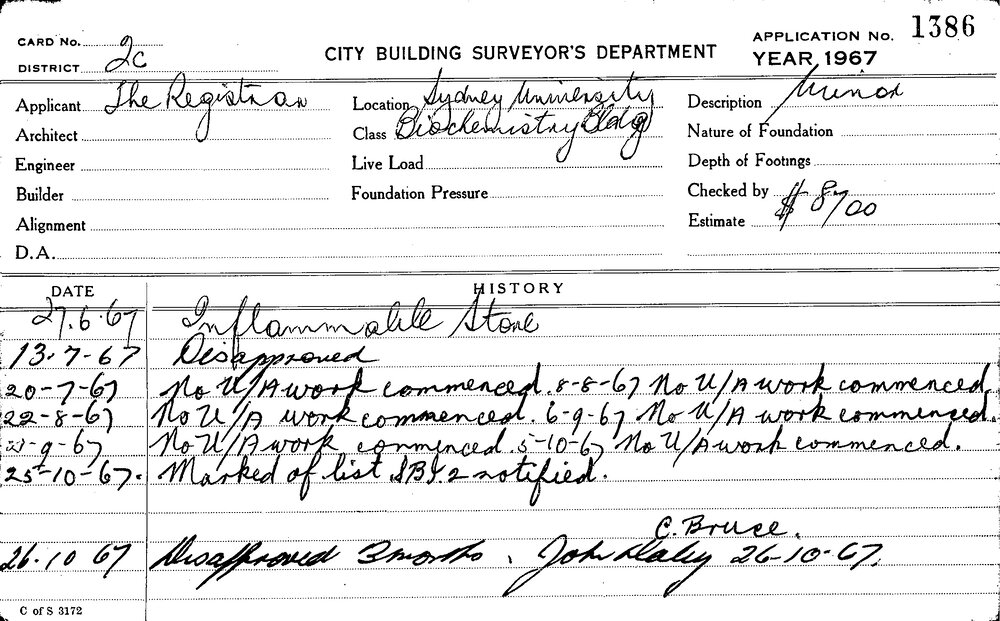 CARD No. 2c
DISTRICT
CITY BUILDING SURVEYOR'S DEPARTMENT
APPLICATION No. 1386
YEAR 1967
Applicant The Registrar
Location Sydney University
Description Minor
Architect
Class Biochemistry Bldg
Nature of Foundation
Engineer
Live Load
Depth of Footings
Builder
Foundation Pressure
Checked by
Alignment
Estimate $8700
D.A.
DATE HISTORY
27.6.67 Inflammable Store
13-7-67 Disapproved
20-7-67 No U/A work commenced. 8-8-67 No U/A work commenced.
22-8-67 No U/A work commenced. 6-9-67 No U/A work commenced.
-9-67 No U/A work commenced. 5-10-67 No U/A work commenced.
25-10-67. Marked of list S.B.I.2 notified.
C. Bruce.
26.10 67 Disapproved 3 months. John Daley 26-10-67.
C of S 3172